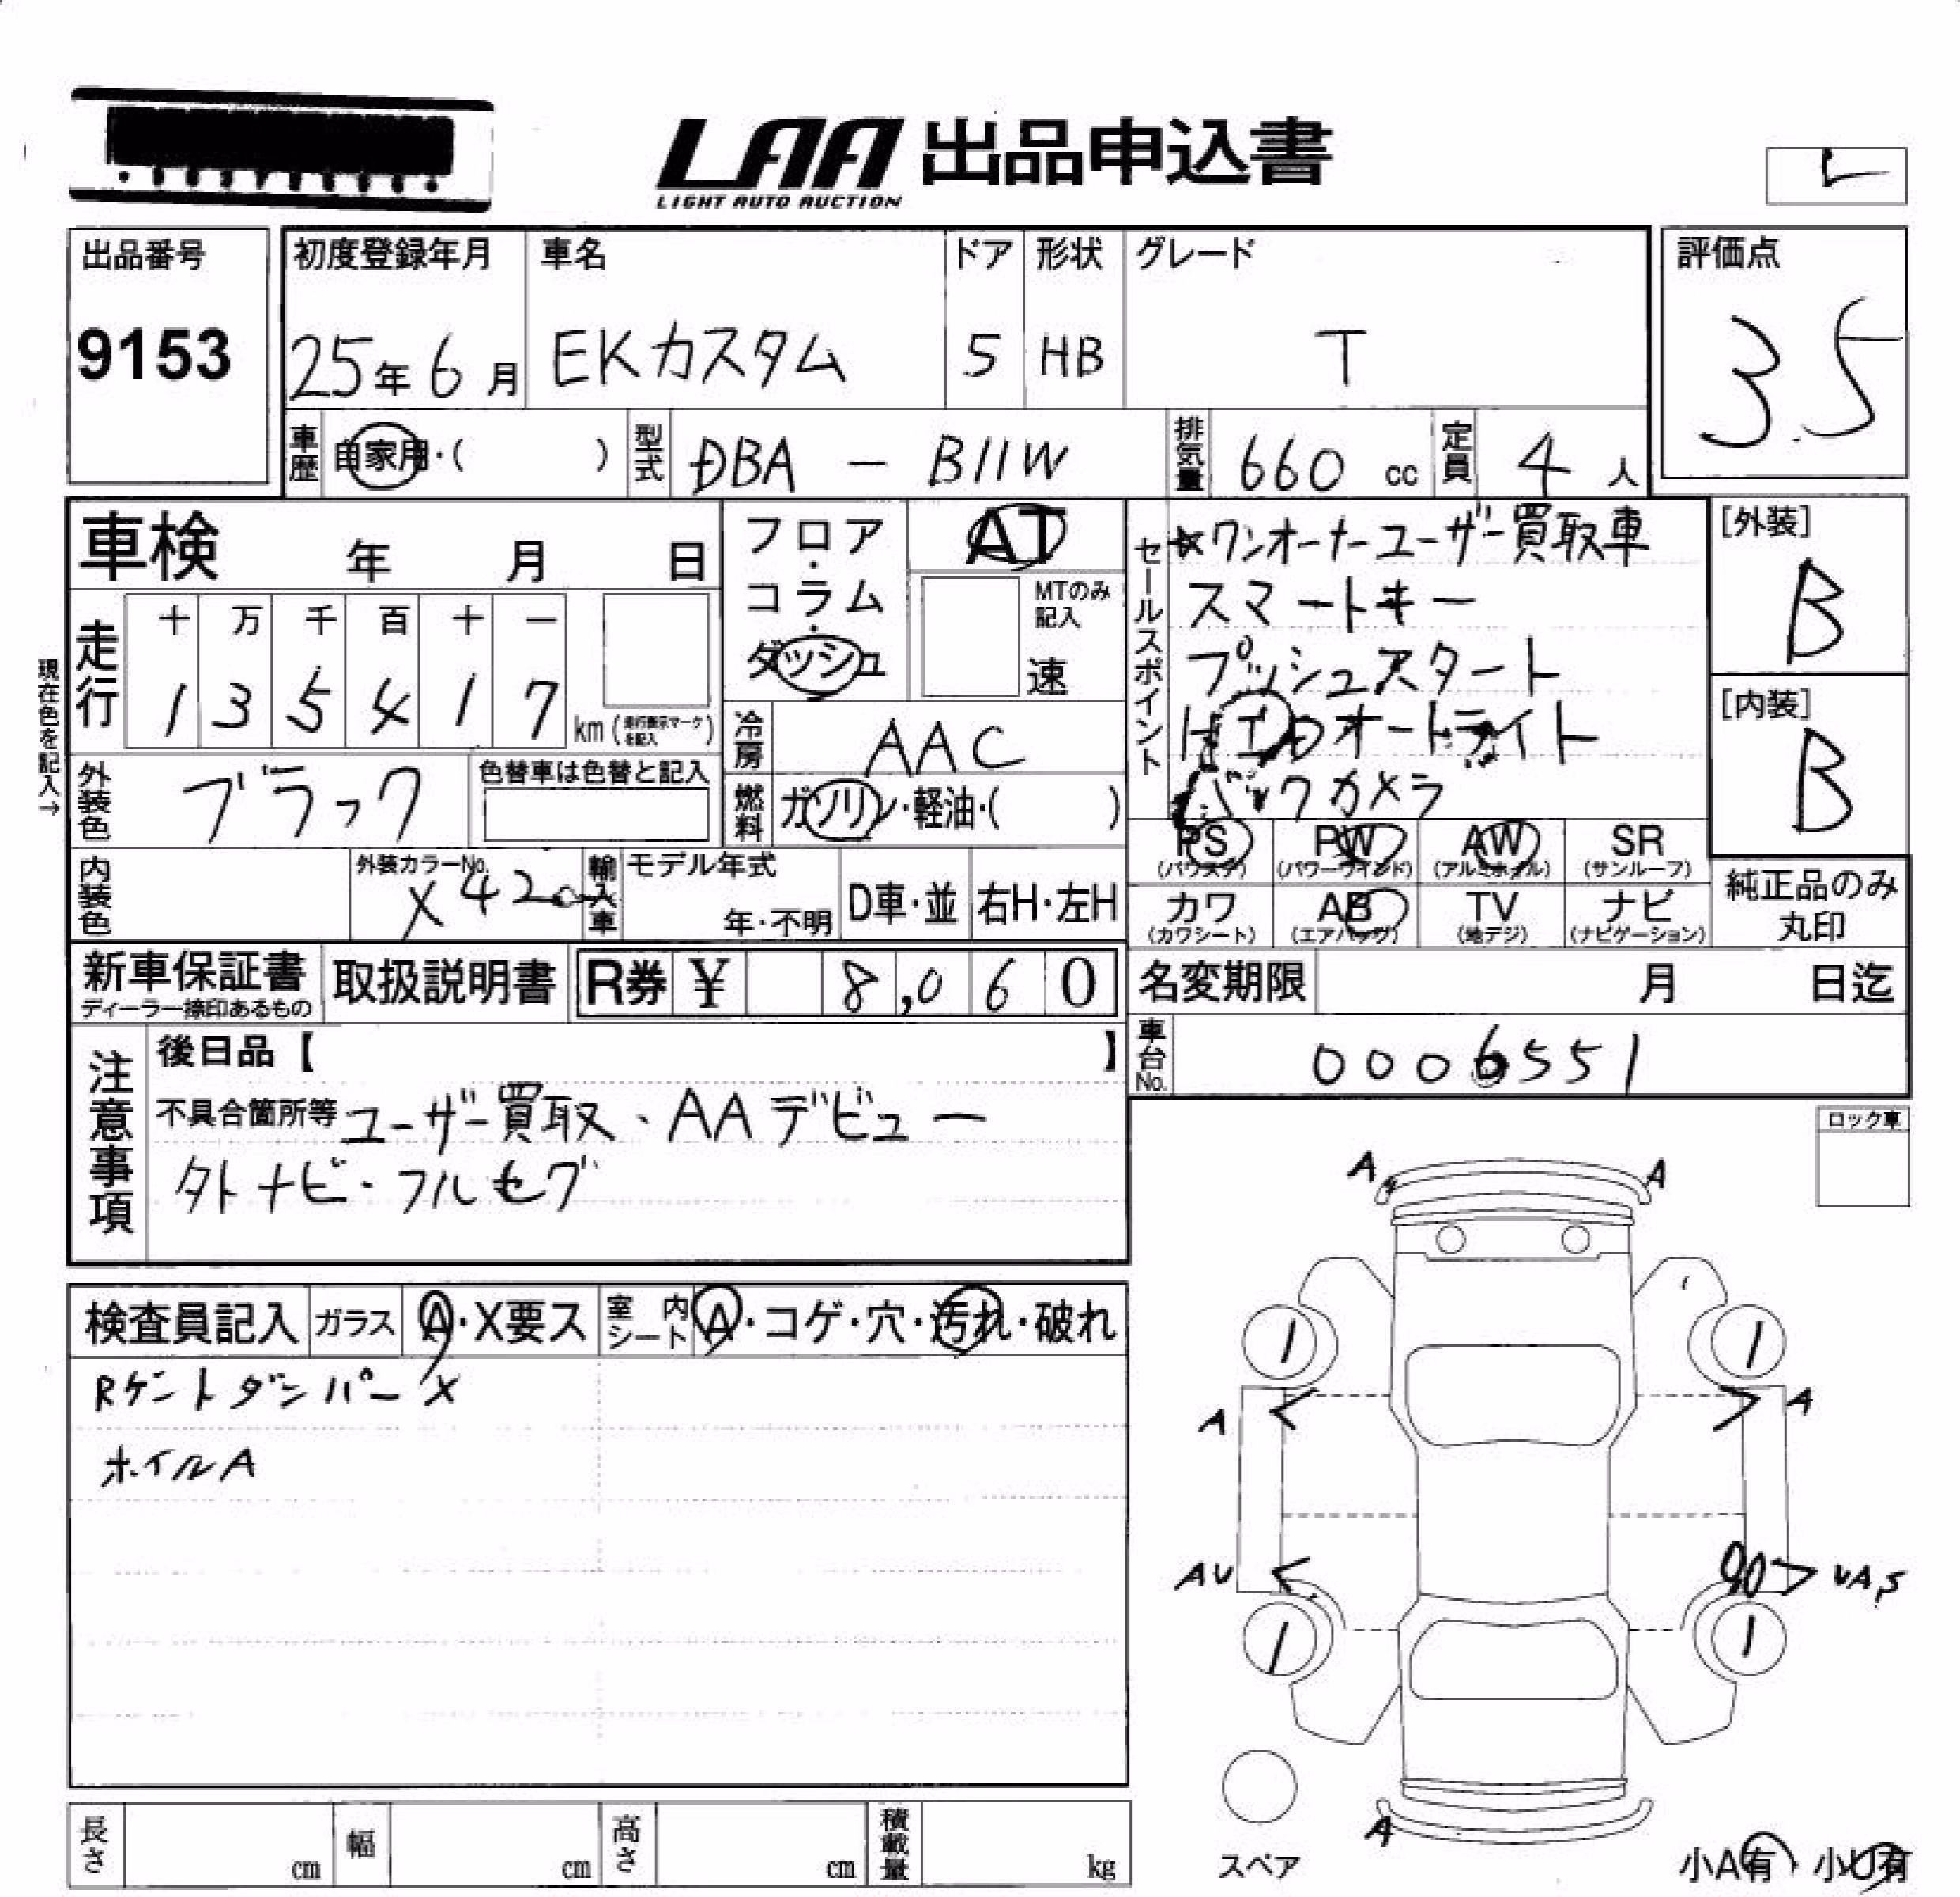 LAA 出品申込書
LIGHT AUTO AUCTION
出品番号
9153
初度登録年月
25年6月
車名
EKカスタム
ドア
5
形状
HB
グレード
T
評価点
3.5
車歴 自家用・( )
型式 DBA - B11W
排気量 660 cc
定員 4 人
車検 年 月 日
走行
十 万 千 百 十 一
1 3 5 4 1 7
km (走行表示マークを記入)
現在色を記入→
外装色 ブラック
色替車は色替と記入
内装色
外装カラーNo.
X42
輸入車
モデル年式
年・不明
D車・並
右H・左H
フロア・コラム・ダッシュ
AT
MTのみ記入
速
冷房 AAC
燃料 ガソリン・軽油・( )
セールスポイント
☆ワンオーナーユーザー買取車
スマートキー
プッシュスタート
オートライト
バックカメラ
[外装]
B
[内装]
B
PS
(パワステ)
PW
(パワーウインド)
AW
(アルミホイル)
SR
(サンルーフ)
カワ
(カワシート)
AB
(エアバッグ)
TV
(地デジ)
ナビ
(ナビゲーション)
純正品のみ
丸印
新車保証書
ディーラー捺印あるもの
取扱説明書
R券 ¥ 8,060
名変期限 月 日迄
車台No. 0006551
注意事項
後日品【 】
不具合箇所等 ユーザー買取、AAデビュー
外ナビ・フルセグ
ロック車
検査員記入
ガラス A・X要ス
室内シート A・コゲ・穴・汚れ・破れ
Rゲートダンパー X
ホイルA
A A
1 1
A A
AU UA,S
1 1
A
スペア
小A有・小U有
長さ cm
幅 cm
高さ cm
積載量 kg